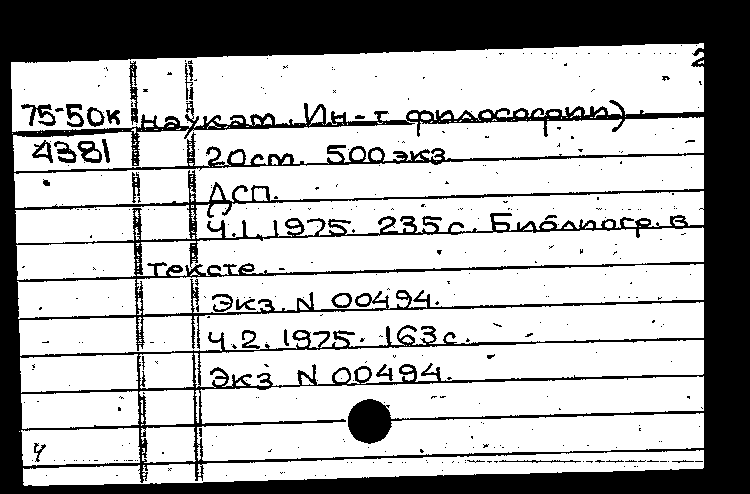 2
75-50к наукам. Ин-т философии).
4381 20cm. 500 экз.
ДСП.
Ч.1. 1975. 235с. Библиогр. в
тексте.
Экз. N 00494.
Ч.2. 1975. 163с.
Экз N 00494.
4